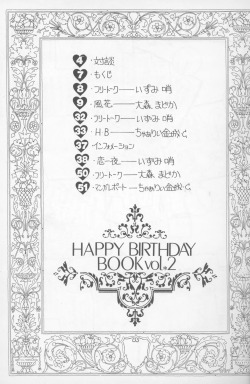 4 ・対談
7 ・もくじ
8 ・フリートーク――いずみ 晴
9 ・風花――大森 まどか
32 ・フリートーク――いずみ 晴
33 ・HB――ちゃありぃ金城
37 ・インフォメーション
38 ・恋一夜――いずみ 晴
50 ・フリートーク――大森 まどか
51 ・マンガレポート――ちゃありぃ金城
HAPPY BIRTHDAY
BOOK vol.2